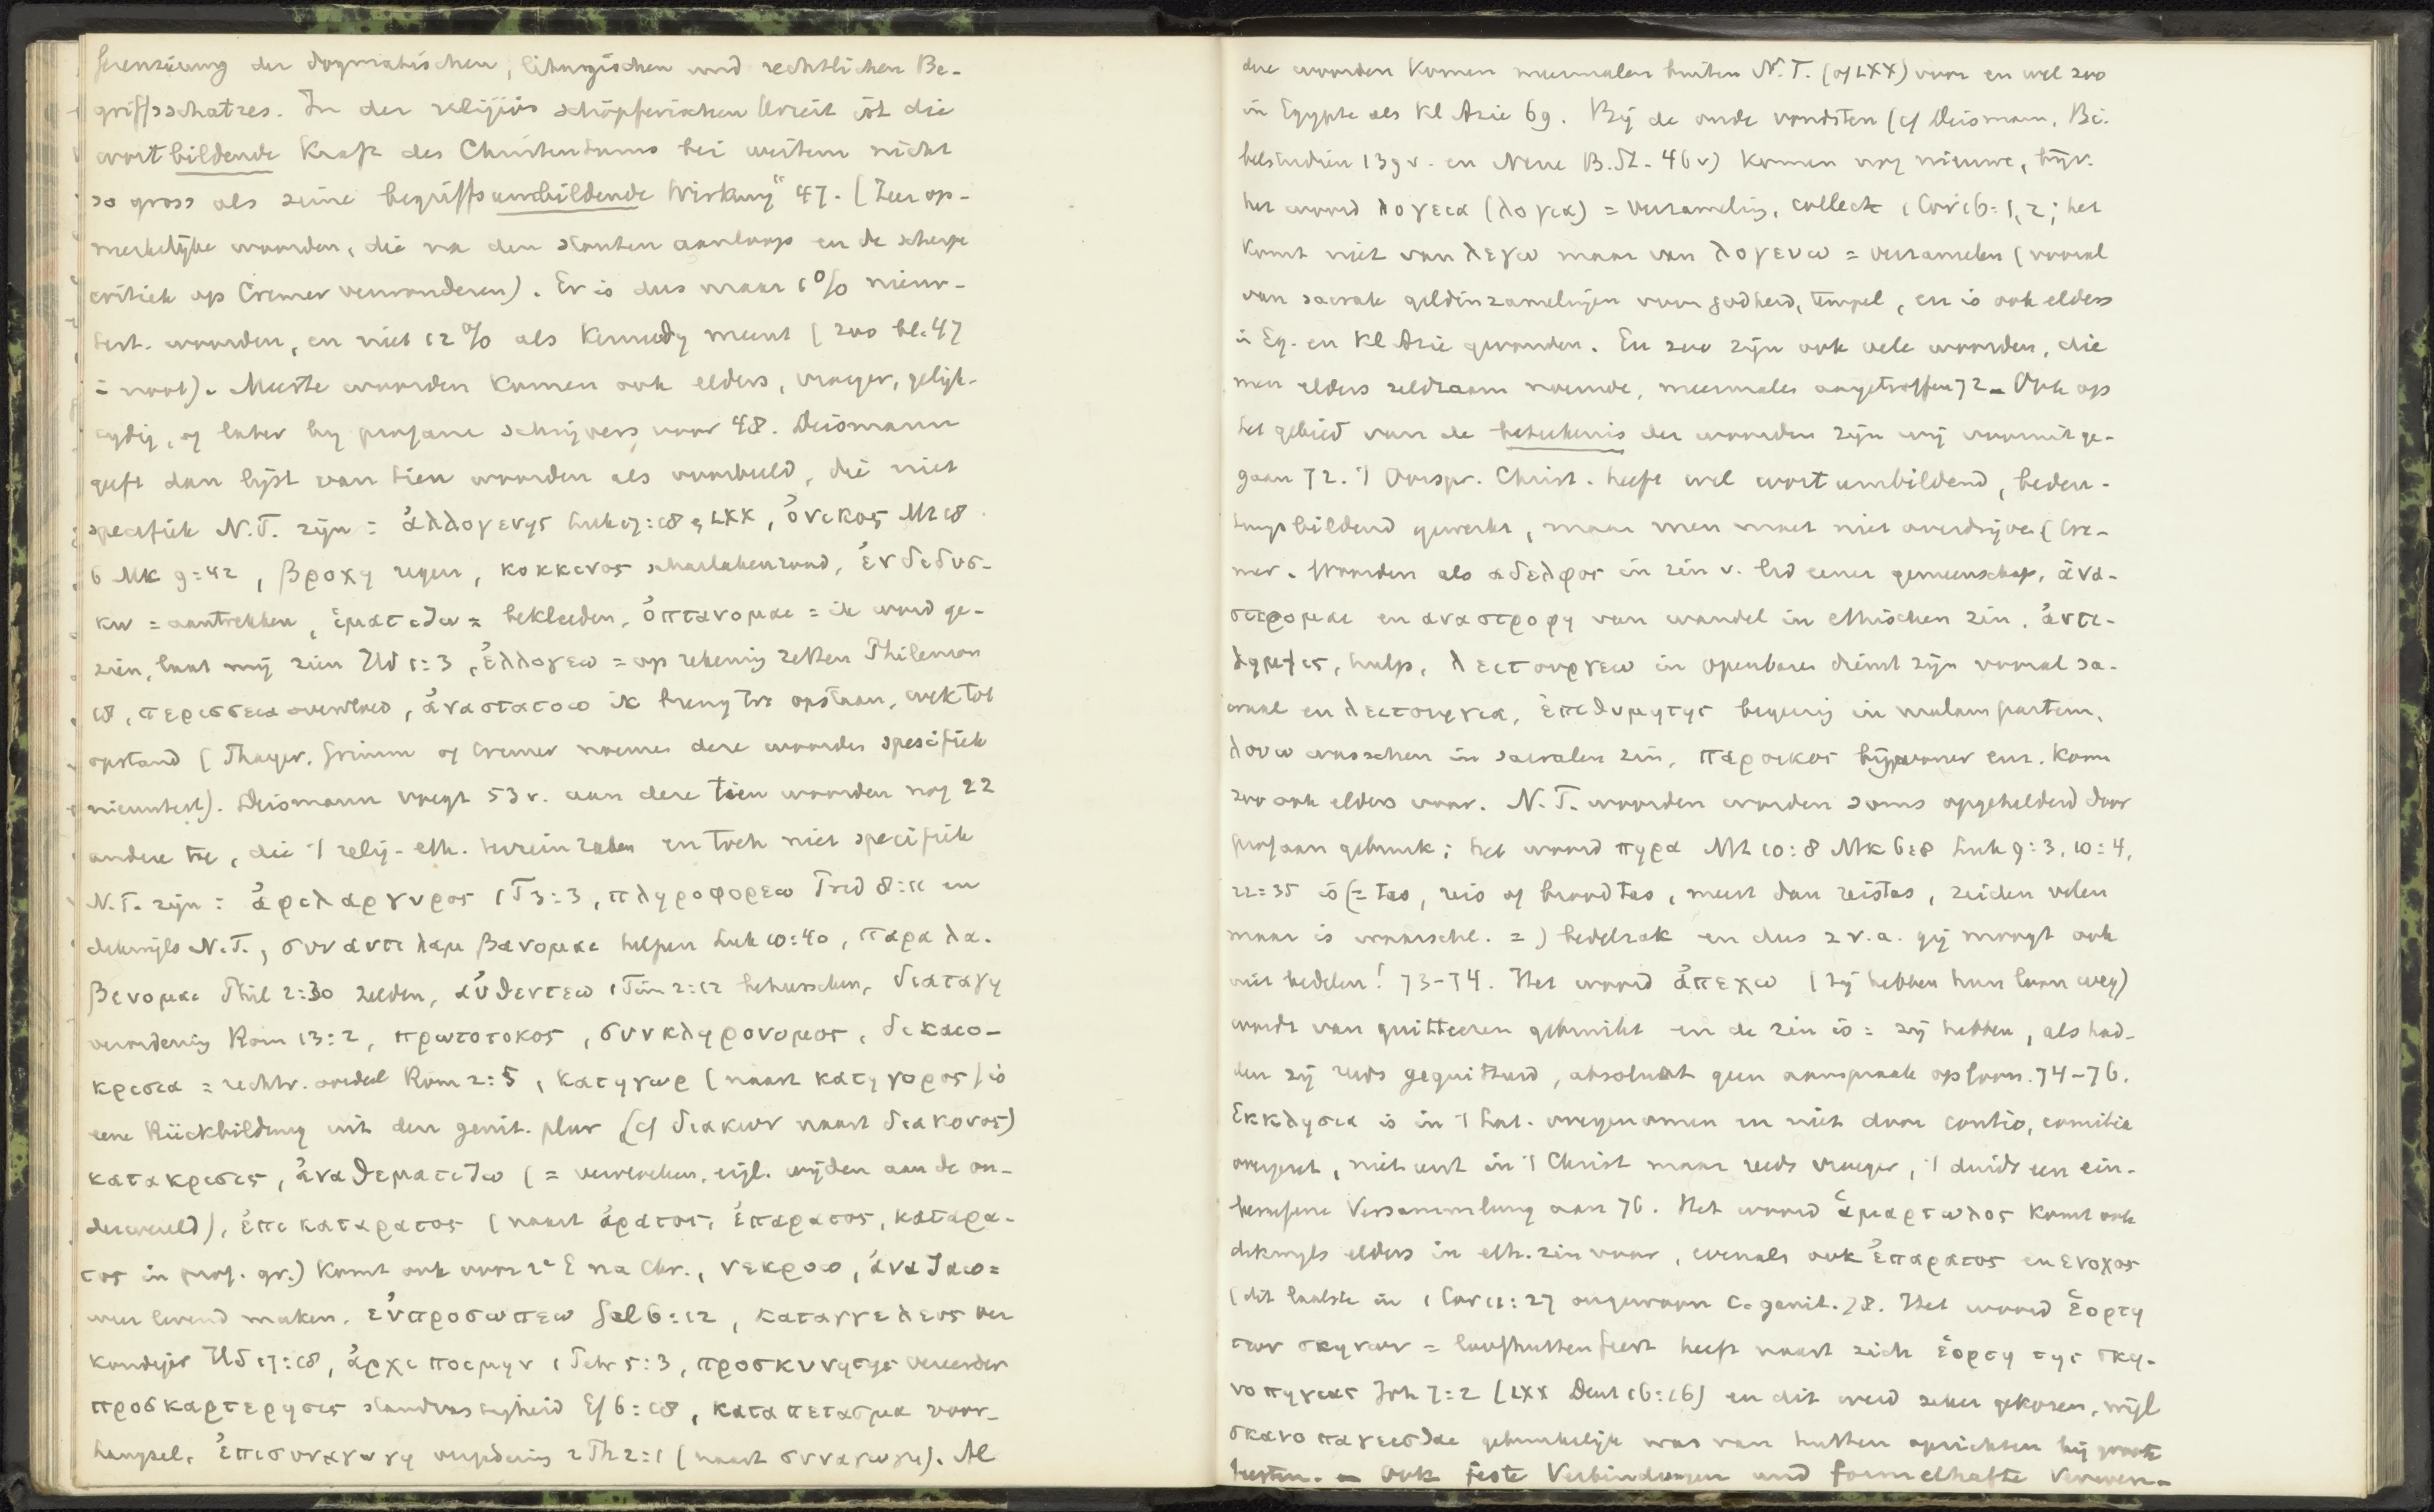 ferenzierung der dogmatischen, liturgischen und rechtlichen Be-
griffsschatzes. In der religiös schöpferischen Urzeit ist die
wortbildende Kraft des Christentums bei weitem nicht
so gross als seine begriffsumbildende Wirkung" 47. (Zeer op-
merkelijke woorden, die na den stouten aanloop en de scherpe
critiek op Cremer verwonderen). Er is dus maar 1% nieuw-
test. woorden, en niet 12% als Kennedy meent (zoo bl. 47
i noot). Meeste woorden komen ook elders, vroeger, gelijk-
tydig, of later by profane schrijvers voor 48. Deismann
geeft dan lijst van tien woorden als voorbeeld, die niet
specifiek N.T. zijn: ἀλλογενης Luk 17:18 LXX, ὀνικος Mt 18
6 Mk 9:42, βροχη regen, κοκκινος scharlakenrood, ἐνδιδυσ-
κω = aantrekken, ἱματιζω = bekleeden, ὀπτανομαι = ik word ge-
zien, laat mij zien Hd 1:3, ἐλλογεω = op rekening zetten Philemon
18, περισσεια overvloed, ἀναστατοω ik breng tot opstaan, wek tot
opstand (Thayer, Grimm of Cremer noemen deze woorden specifiek
nieuwtest). Deismann voegt 53 v. aan deze tien woorden nog 22
andere toe, die 't relig-eth. terrein raken en toch niet specifiek
N.T. zijn: ἀφιλαργυρος 1 T 3:3, πληροφορεω Pred 8:11 en
dikwijls N.T., συναντιλαμβανομαι helpen Luk 10:40, παραλα-
βενομαι Phil 2:30 zelden, αὐθεντεω 1 Tim 2:12 beheerschen, διαταγη
verordening Rom 13:2, πρωτοτοκος, συνκληρονομος, δικαιο-
κρισια = rechtv. oordeel Rom 2:5, κατηγωρ (naast κατηγορος) is
eene Rückbildung uit den genit. plur (cf διακων naast διακονος)
κατακρισις, ἀναθεματιζω (= vervloeken, eigl. wijden aan de on-
derwereld), ἐπικαταρατος (naast ἀρατος, ἐπαρατος, καταρα-
τος in prof. gr.) komt ook voor 2e E na Chr., νεκροω, ἀναζαω =
weer levend maken, εὐπροσωπεω Gal 6:12, καταγγελευς ver
kondiger Hd 17:18, ἀρχιποιμην 1 Petr 5:3, προσκυνητης vereerder
προσκαρτερησις standvastigheid Ef 6:18, καταπετασμα voor-
hangsel, ἐπισυναγωγη 2 Th 2:1 (naast συναγωγη). Al
deze woorden komen meermalen buiten N.T. (of LXX) voor en wel zoo
in Egypte als Kl Azie 69. Bij de oude vondsten (cf Deismann, Bi-
belstudien 139 v. en Neue B.St. 46 v) komen nog nieuwe, bijv.
het woord λογεια (λογια) = verzameling, collecte 1 Cor 16:1, 2; het
komt niet van λεγω maar van λογευω = verzamelen (vooral
van sacrale geldinzamelingen voor godheid, tempel, en is ook elders
in Eg. en Kl Azie gevonden. En zoo zijn ook vele woorden, die
men elders zeldzaam noemde, meermales aangetroffen 72. Ook op
het gebied van de beteekenis der woorden zijn wij vooruitge-
gaan 72. 't Oorspr. Christ. heeft wel wortumbildend, bedeu-
tungsbildend gewerkt, maar men moet niet overdrijven (Cre-
mer. Woorden als αδελφος in zin v. lid eener gemeenschap, ἀνα-
στεφομαι en αναστροφη van wandel in ethischen zin, ἀντι-
λημψις, hulp, λειτουργεω in openbaren dienst zijn vooral sa-
craal en λειτουργια, ἐπιθυμητης begeerig in malam partem,
λουω wasschen in sacralen zin, παροικος bijwoner enz. kom
zoo ook elders voor. N.T. woorden worden soms opgehelderd door
profaan gebruik; het woord πηρα Mt 10:8 Mk 6:8 Luk 9:3, 10:4,
22:35 is (= tas, reis of broodtas, meest dan reistas, zeiden velen
maar is waarschl. =) bedelzak en dus z v.a. gij moogt ook
niet bedelen! 73-74. Het woord ἀπεχω (zij hebben hun loon weg)
wordt van quitteeren gebruikt en de zin is = zij hebben, als had-
den zij reeds gequitteerd, absoluut geen aanspraak op loon. 74-76.
Εκκλησια is in 't Lat. overgenomen en niet door contio, comitia
overgezet, niet eerst in 't Christ maar reeds vroeger, 't duidt een ein-
berufene Versammlung aan 76. Het woord ἁμαρτωλος komt ook
dikwyls elders in eth. zin voor, evenals ook ἐπαρατος en ενοχος
(dit laatste in 1 Cor 11:27 ongewoon c. genit. 78. Het woord ἑορτη
των σκηνων = loofhuttenfeest heeft naast zich ἑορτη της σκη-
νοπηγιας Joh 7:2 (LXX Deut 16:16) en dit werd zeker gekozen, wijl
σκανοπαγεισθαι gebruikelijk was van hutten oprichten bij groote
feesten. Ook feste Verbindungen und formelhafte Verwen-